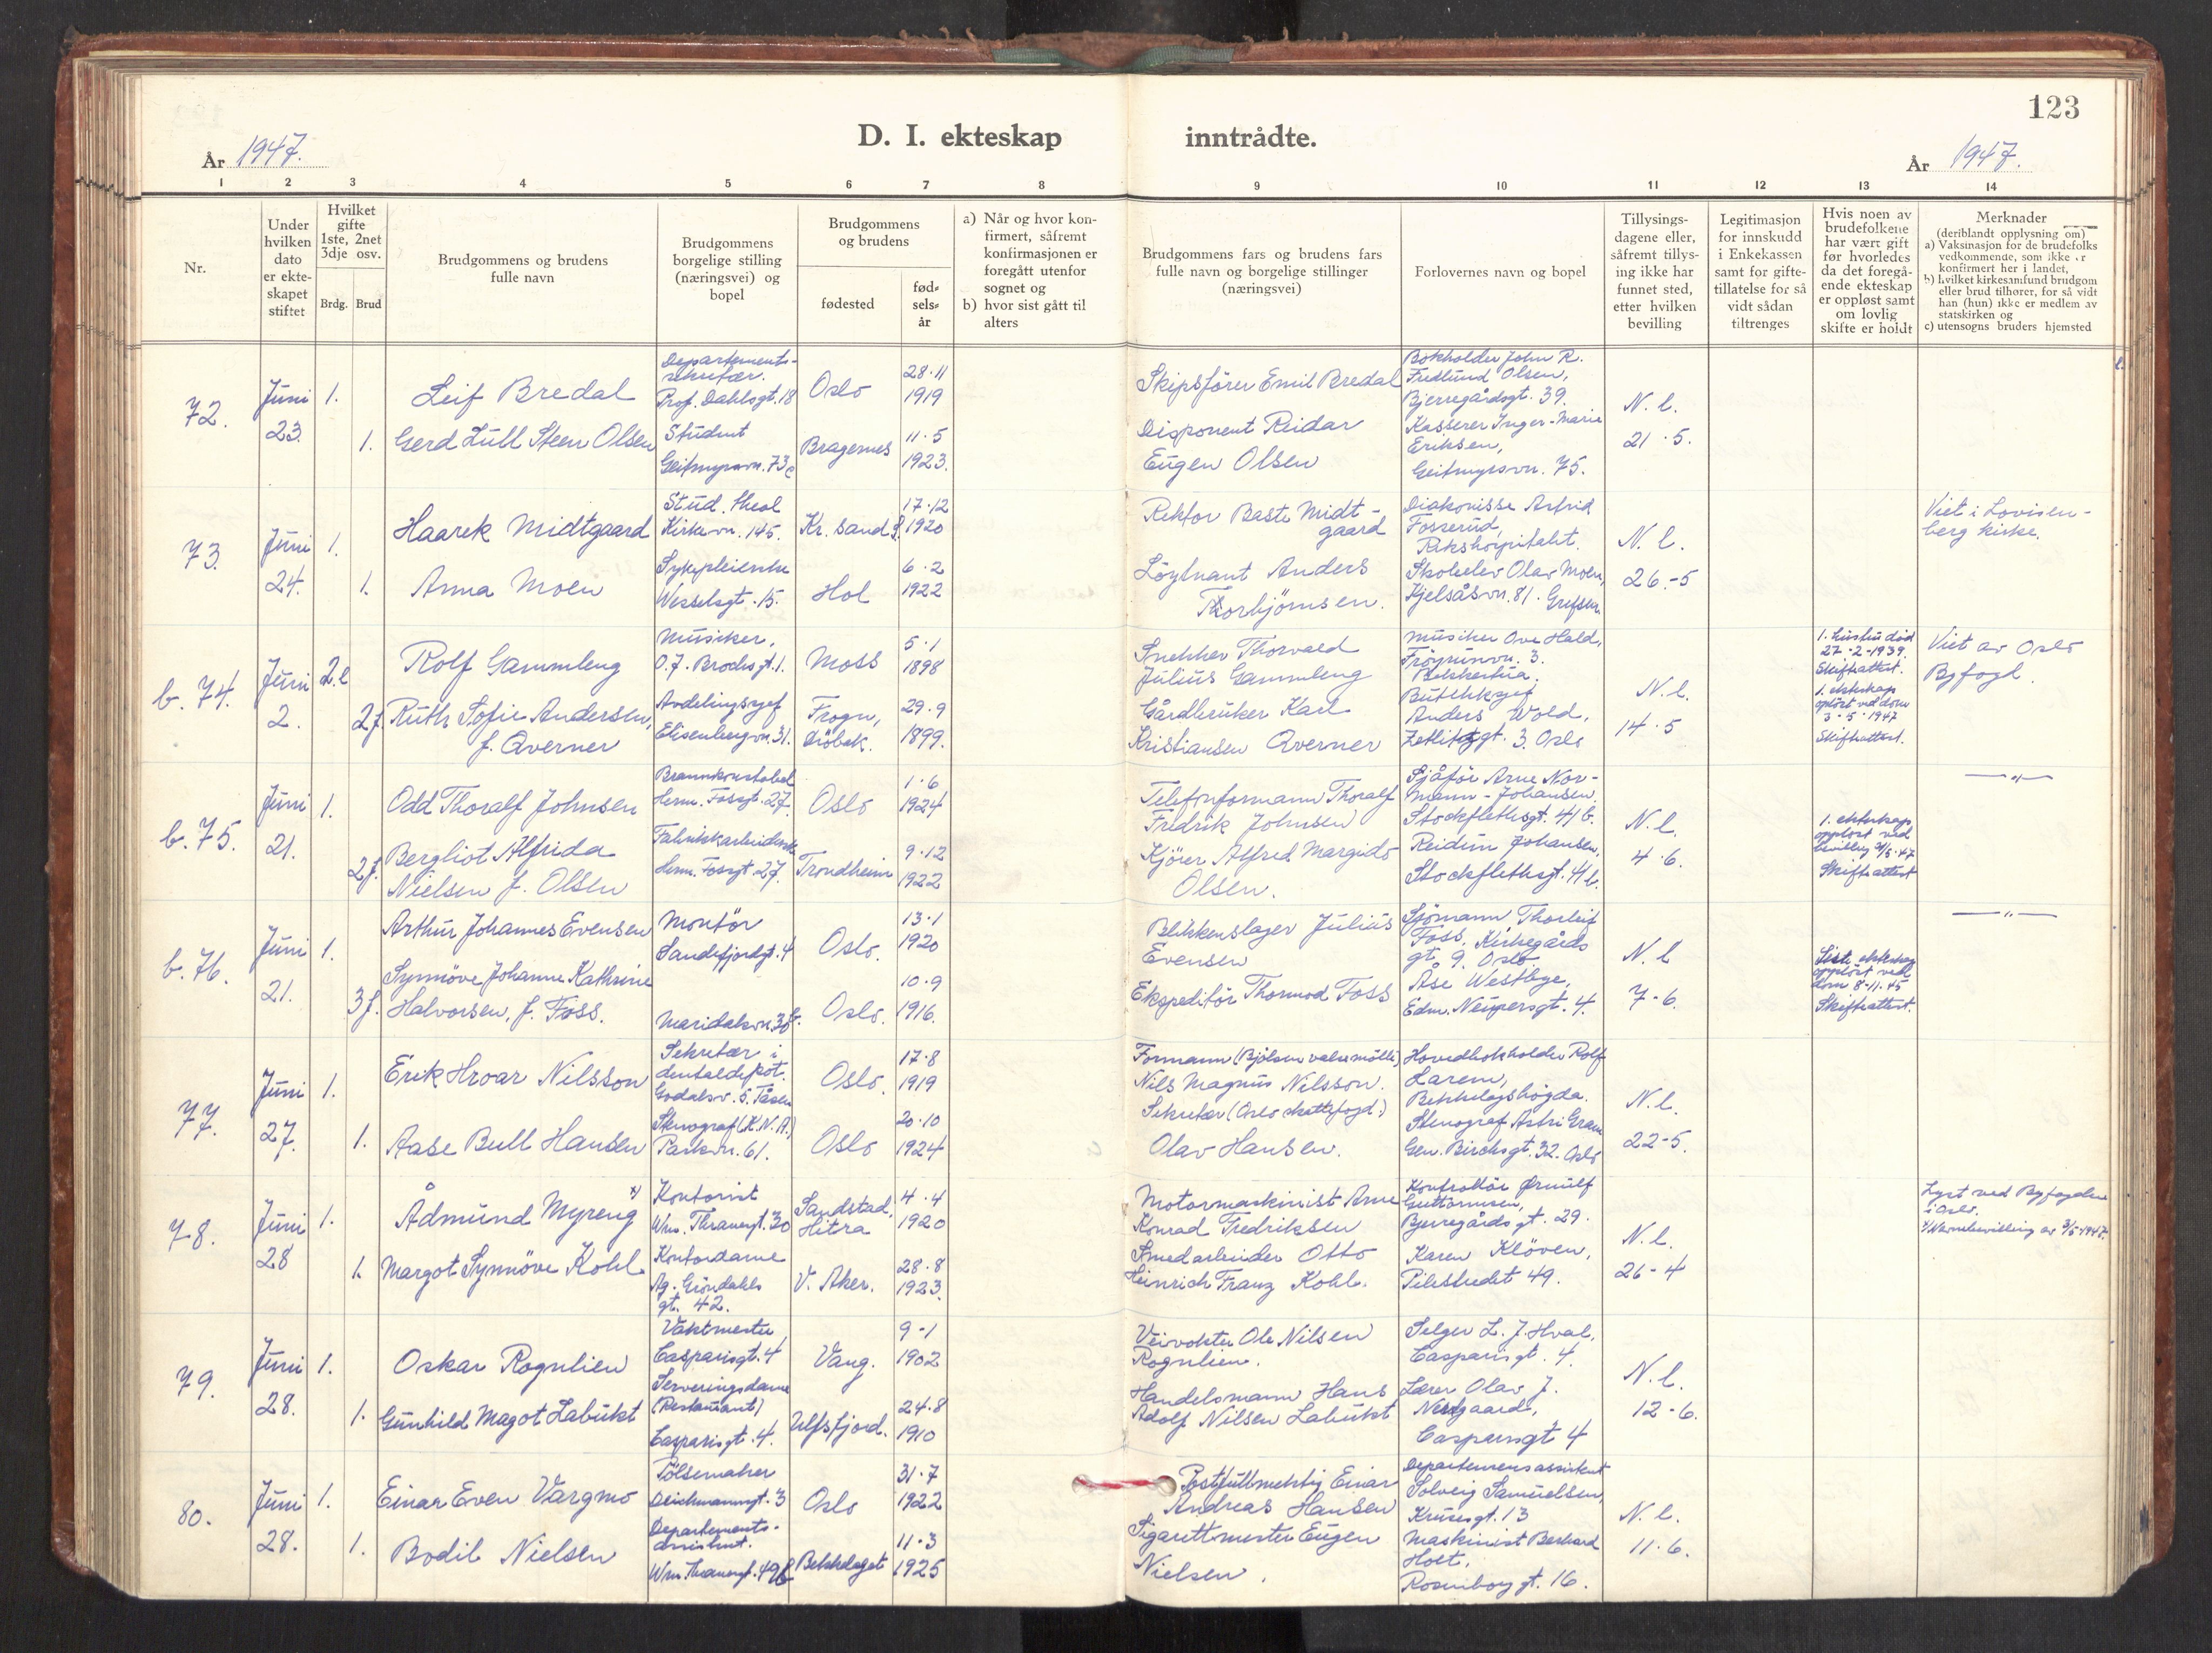 123
D. I. ekteskap inntrådte.
År 1947.
År 1947.
1 2 3 4 5 6 7 8 9 10 11 12 13 14
Nr.
Under
hvilken
dato
er ekte-
skapet
stiftet
Hvilket
gifte
1ste, 2net
3dje osv.
Brdg. Brud
Brudgommens og brudens
fulle navn
Brudgommens
borgelige stilling
(næringsvei) og
bopel
Brudgommens
og brudens
fødested
fød-
sels-
år
a) Når og hvor kon-
firmert, såfremt
konfirmasjonen er
foregått utenfor
sognet og
b) hvor sist gått til
alters
Brudgommens fars og brudens fars
fulle navn og borgelige stillinger
(næringsvei)
Forlovernes navn og bopel
Tillysings-
dagene eller,
såfremt tillys-
ing ikke har
funnet sted,
etter hvilken
bevilling
Legitimasjon
for innskudd
i Enkekassen
samt for gifte-
tillatelse for så
vidt sådan
tiltrenges
Hvis noen av
brudefolkene
har vært gift
før hvorledes
da det foregå-
ende ekteskap
er oppløst samt
om lovlig
skifte er holdt
Merknader
(deriblandt opplysning om)
a) Vaksinasjon for de brudefolks
vedkommende, som ikke er
konfirmert her i landet,
b) hvilket kirkesamfund brudgom
eller brud tilhører, for så vidt
han (hun) ikke er medlem av
statskirken og
c) utensogns bruders hjemsted
72.
Juni
23.
1.
Leif Bredal
Departements-
sekretær.
Prof. Dahlsgt. 18
Oslo
28.11
1919
1.
Gerd Lull Steen Olsen
Student
Geitmyrsvn. 73c
Bragernes
11.5
1923.
Skipsförer Emil Bredal
Disponent Reidar
Eugen Olsen
Bokholder John R.
Fredlund Olsen,
Bjerregårdsgt. 39.
Kasserer Inger-Marie
Eriksen,
Geitmyrsvn. 75.
N. l.
21.5.
73.
Juni
24.
1.
Haarek Midtgaard
Stud. theol
Kirkevn. 145.
Kr. sand S.
17.12
1920
1.
Anna Moen
Sykepleierske
Wesselsgt. 15.
Hol
6.2
1922
Rektor Baste Midt-
gaard
Löytnant Anders
Thorbjörnsen.
Diakonisse Astrid
Fosserud,
Rikshospitalet.
Skoleelev Olav Moen,
Kjelsåsvn. 81. Grefsen
N. l.
26.-5
Viet i Lovisen-
berg kirke.
b. 74.
Juni
2.
2.e
Rolf Gammleng
Musiker,
O.J. Brochsgt. 1.
Moss
5.1
1898
2f.
Ruth Sofie Andersen,
f. Qverner
Avdelingssjef
Elisenbergvn. 31.
Frogn,
Dröbak.
29.9
1899.
Snekker Thorvald
Julius Gammleng
Gårdbruker Karl
Kristiansen Qverner
Musiker Ove Hald,
Fröyrinvn. 3.
Bekkestua.
Butikksjef
Anders Wold,
Zetlitzgt. 3. Oslo
N. l.
14.5
1. hustru död
27-2-1939.
Skifteattest.
1. ekteskap
oplöst ved dom
3-5-1947
Skifteattest.
Viet av Oslo
Byfogd.
b. 75.
Juni
21.
1.
Odd Thoralf Johnsen
Brannkonstabel
Herm. Fossgt. 27.
Oslo
1.6
1924
2f.
Bergliot Alfrida
Nielsen f. Olsen
Fabrikkarbeiderske
Herm. Fossgt. 27.
Trondheim
9.12
1922
Telefonformann Thoralf
Fredrik Johnsen
Kjörer Alfred Margido
Olsen.
Sjåför Arne Nor-
mann-Johansen.
Stockflethsgt. 41b.
Reidun Johansen,
Stockflethsgt. 41b.
N. l.
4.6.
1. ekteskap
opplöst ved
Skifteattest
— " —
b. 76.
Juni
21.
1.
Arthur Johannes Evensen
Montör
Sandefjordgt. 4
Oslo.
13.1
1920
3f.
Synnöve Johanne Kathrine
Halvorsen, f. Foss.
Maridalsvn. 38b.
Oslo.
10.9
1916.
Blikkenslager Julius
Evensen
Ekspeditör Thormod Foss
Sjömann Thorleif
Foss, Kirkegårds
gt. 9. Oslo.
Åse Westbye,
Edm. Neupersgt. 4.
N. l
7-6.
Siste ekteskap
opplöst ved
dom 8-11.45
Skifteattest.
— " —
77.
Juni
27.
1.
Erik Hroar Nilsson
Sekretær i
dentaldepot.
Godalsv. 5. Tåsen
Oslo.
17.8
1919
1.
Aase Bull Hansen
Stenograf (K.N.A.)
Parkvn. 61.
Oslo
20.10
1924
Formann (Bjölsen valsemölle)
Nils Magnus Nilsson.
Sekretær (Oslo skattefogd.)
Olav Hansen.
Hovedbokholder Rolf
Larem,
Bekkelagshögda.
Stenograf Astri Gram
Gen. Birchsgt. 32. Oslo
N. l.
22-5.
78.
Juni
28
1.
Ådmund Myreng x)
Kontorist
Wm. Thranesgt. 30
Sandstad,
Hitra
4.4
1920
1.
Margot Synnöve Kohl
Kontordame
Ag. Gröndahls
gt. 42.
V. Aker.
28.8
1923.
Motormaskinist Arne
Konrad Fredriksen
Smedarbeider Otto
Heinrich Franz Kohl.
Kontrollör Ørnulf
Guttormsen,
Bjerregårdsgt. 29.
Karen Klöven,
Pilestredet 49.
N. l.
26-4
Lyst ved Byfogden
i Oslo.
x) Navnebevilling av 3/5-1947.
79.
Juni
28.
1.
Oskar Rognlien
Vaktmester
Casparisgt. 4
Vang.
9-1
1902
1.
Gunhild Magot Labukt
Serveringsdame
(Restaurant)
Casparisgt. 4.
Ulfsfjord.
24.8
1910
Veivokter Ole Nilsen
Rognlien.
Handelsmann Hans
Adolf Nilsen Labukt
Selger L. J. Hval,
Casparisgt. 4.
Lærer Olav J.
Nergaard,
Casparisgt 4
N. l.
12-6.
80.
Juni
28.
1.
Einar Even Vargmo
Pölsemaker
Deichmannsgt. 3
Oslo
31.7
1922
1.
Bodil Nielsen
Departements-
assistent.
Wm. Thranesgt. 49b
Bekkelaget
11.3
1925
Postfullmektig Einar
Andreas Hansen
Sigarettmester Eugen
Nielsen.
Departementsassistent
Solveig Samuelsen,
Krusesgt. 13
Maskinist Bernhard
Holt,
Rosenborggt. 16.
N. l.
11.6.